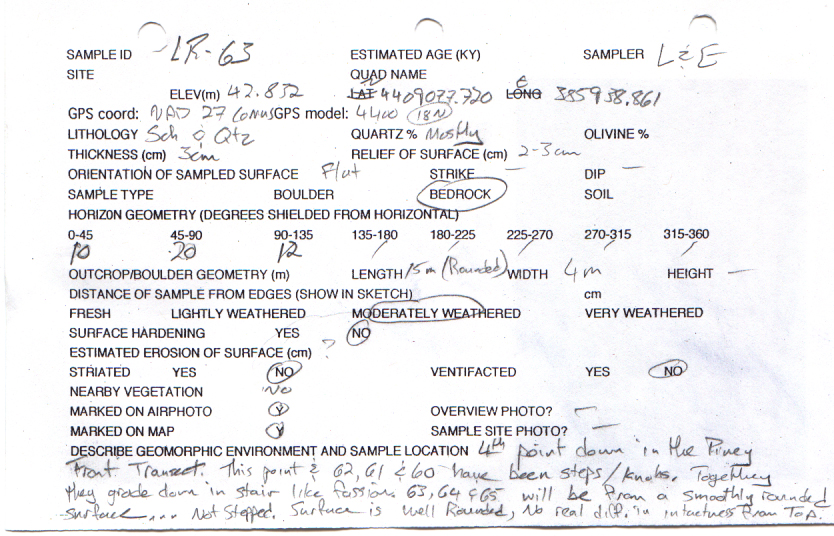 SAMPLE ID LR-63 ESTIMATED AGE (KY) SAMPLER L & E
SITE QUAD NAME
ELEV(m) 42.832 LAT N 4409077.720 LONG E 385938.861
GPS coord: NAD 27 CONUS GPS model: 4400 18N
LITHOLOGY Sch & Qtz QUARTZ % Mostly OLIVINE %
THICKNESS (cm) 3cm RELIEF OF SURFACE (cm) 2-3 cm
ORIENTATION OF SAMPLED SURFACE Flat STRIKE — DIP —
SAMPLE TYPE BOULDER BEDROCK SOIL
HORIZON GEOMETRY (DEGREES SHIELDED FROM HORIZONTAL)
0-45 45-90 90-135 135-180 180-225 225-270 270-315 315-360
10 20 12 / / / / /
OUTCROP/BOULDER GEOMETRY (m) LENGTH 15m (Rounded) WIDTH 4m HEIGHT —
DISTANCE OF SAMPLE FROM EDGES (SHOW IN SKETCH) cm
FRESH LIGHTLY WEATHERED MODERATELY WEATHERED VERY WEATHERED
SURFACE HARDENING YES NO
ESTIMATED EROSION OF SURFACE (cm) ?
STRIATED YES NO VENTIFACTED YES NO
NEARBY VEGETATION NO
MARKED ON AIRPHOTO Y OVERVIEW PHOTO? —
MARKED ON MAP Y SAMPLE SITE PHOTO? —
DESCRIBE GEOMORPHIC ENVIRONMENT AND SAMPLE LOCATION 4th point down in the Piney
Front Transect. This point & 62, 61 & 60 have been steps/knobs. Together
they grade down in stair like fassion. 63, 64 & 65 will be from a smoothly rounded
surface... Not Stepped. Surface is well Rounded, No real diff. in intactness from Top.